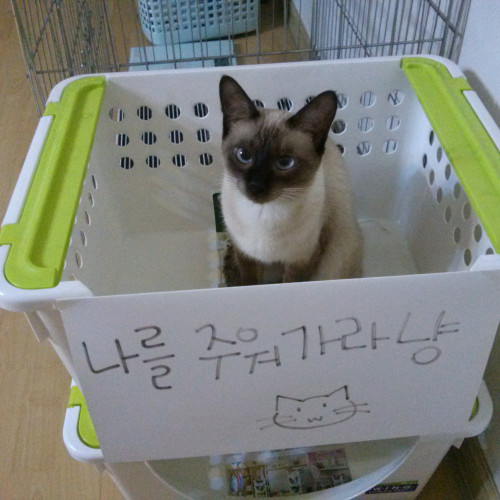 나를 주워가라냥